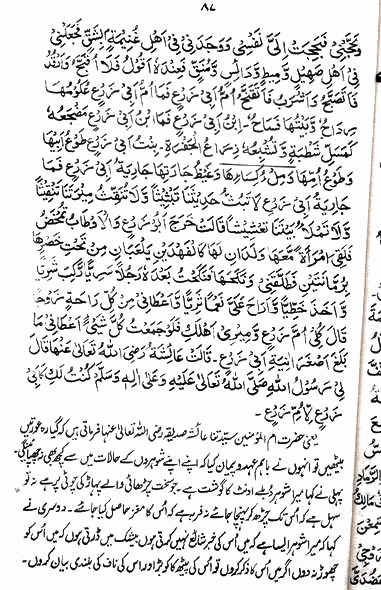 ٨٧
وَبَجَّحَنِیْ فَبَجِحَتْ اِلَیَّ نَفْسِیْ وَوَجَدَنِیْ فِیْ اَهْلِ غُنَیْمَةٍ بِشِقٍّ فَجَعَلَنِیْ
فِیْ اَهْلِ صَهِیْلٍ وَّاَطِیْطٍ وَّدَائِسٍ وَّمُنَقٍّ فَعِنْدَهٗ اَقُوْلُ فَلَا اُقَبَّحُ وَاَرْقُدُ
فَاَتَصَبَّحُ وَاَشْرَبُ فَاَتَقَنَّحُ اُمُّ اَبِیْ زَرْعٍ فَمَا اُمُّ اَبِیْ زَرْعٍ عُکُوْمُهَا
رِدَاحٌ وَّبَیْتُهَا فَسَاحٌ۔ ابْنُ اَبِیْ زَرْعٍ فَمَا ابْنُ اَبِیْ زَرْعٍ مَضْجَعُهٗ
کَمَسَلِّ شَطْبَةٍ وَّتُشْبِعُهٗ ذِرَاعُ الْجَفْرَةِ۔ بِنْتُ اَبِیْ زَرْعٍ طَوْعُ اَبِیْهَا
وَطَوْعُ اُمِّهَا وَمِلْءُ کِسَاءِهَا وَغَیْظُ جَارَتِهَا جَارِیَةُ اَبِیْ زَرْعٍ فَمَا
جَارِیَةُ اَبِیْ زَرْعٍ لَا تَبُثُّ حَدِیْثَنَا تَبْثِیْثًا وَّلَا تُنَقِّثُ مِیْرَتَنَا تَنْقِیْثًا
وَّلَا تَمْلَاُ بَیْتَنَا تَعْشِیْشًا قَالَتْ خَرَجَ اَبُوْ زَرْعٍ وَالْاَوْطَابُ تُمْخَضُ
فَلَقِیَ امْرَاَةً مَّعَهَا وَلَدَانِ لَهَا کَالْفَهْدَیْنِ یَلْعَبَانِ مِنْ تَحْتِ خَصْرِهَا
بِرُمَّانَتَیْنِ فَطَلَّقَنِیْ وَنَکَحَهَا فَنَکَحْتُ بَعْدَهٗ رَجُلًا سَرِیًّا رَّکِبَ شَرِیًّا
وَّاَخَذَ خَطِّیًّا وَّاَرَاحَ عَلَیَّ نَعَمًا ثَرِیًّا وَّاَعْطَانِیْ مِنْ کُلِّ رَاحَةٍ زَوْجًا
قَالَ کُلِیْ اُمَّ زَرْعٍ وَّمِیْرِیْ اَهْلَكِ فَلَوْ جَمَعْتُ کُلَّ شَیْءٍ اَعْطَانِیْ مَا
بَلَغَ اَصْغَرَ اٰنِیَةِ اَبِیْ زَرْعٍ۔ قَالَتْ عَائِشَةُ رَضِیَ اللّٰهُ تَعَالٰی عَنْهَا قَالَ
لِیْ رَسُوْلُ اللّٰهِ صَلَّی اللّٰهُ تَعَالٰی عَلَیْهِ وَعَلٰی اٰلِهٖ وَسَلَّمَ کُنْتُ لَكِ کَاَبِیْ
زَرْعٍ لِاُمِّ زَرْعٍ۔
یعنی حضرت ام المؤمنین سیدتنا عائشہ صدیقہ رضی اللہ تعالیٰ عنہا فرماتی ہیں کہ گیارہ عورتیں
بیٹھیں تو انہوں نے باہم عہد و پیمان کیا کہ اپنے اپنے شوہروں کے حالات میں سے کچھ بھی نہ چھپائیں گی
پہلی نے کہا میرا شوہر دبلے اونٹ کا گوشت ہے۔ جو سخت چڑھائی والے پہاڑ کی چوٹی پر ہے نہ تو
سہل ہے کہ اُس تک چڑھ کر پہنچا جائے نہ فربہ ہے کہ اُس کا مغز حاصل کیا جائے۔ دوسری نے
کہا کہ میرا شوہر ایسا ہے کہ میں اُس کی خبر شائع نہیں کرتی ہوں بیشک میں ڈرتی ہوں کہ میں اُس کو
چھوڑ نہ دوں اگر میں اُس کا ذکر کروں تو اُس کی پیٹھ کا کوبڑ اور اس کی ناف کی بلندی بیان کروں۔